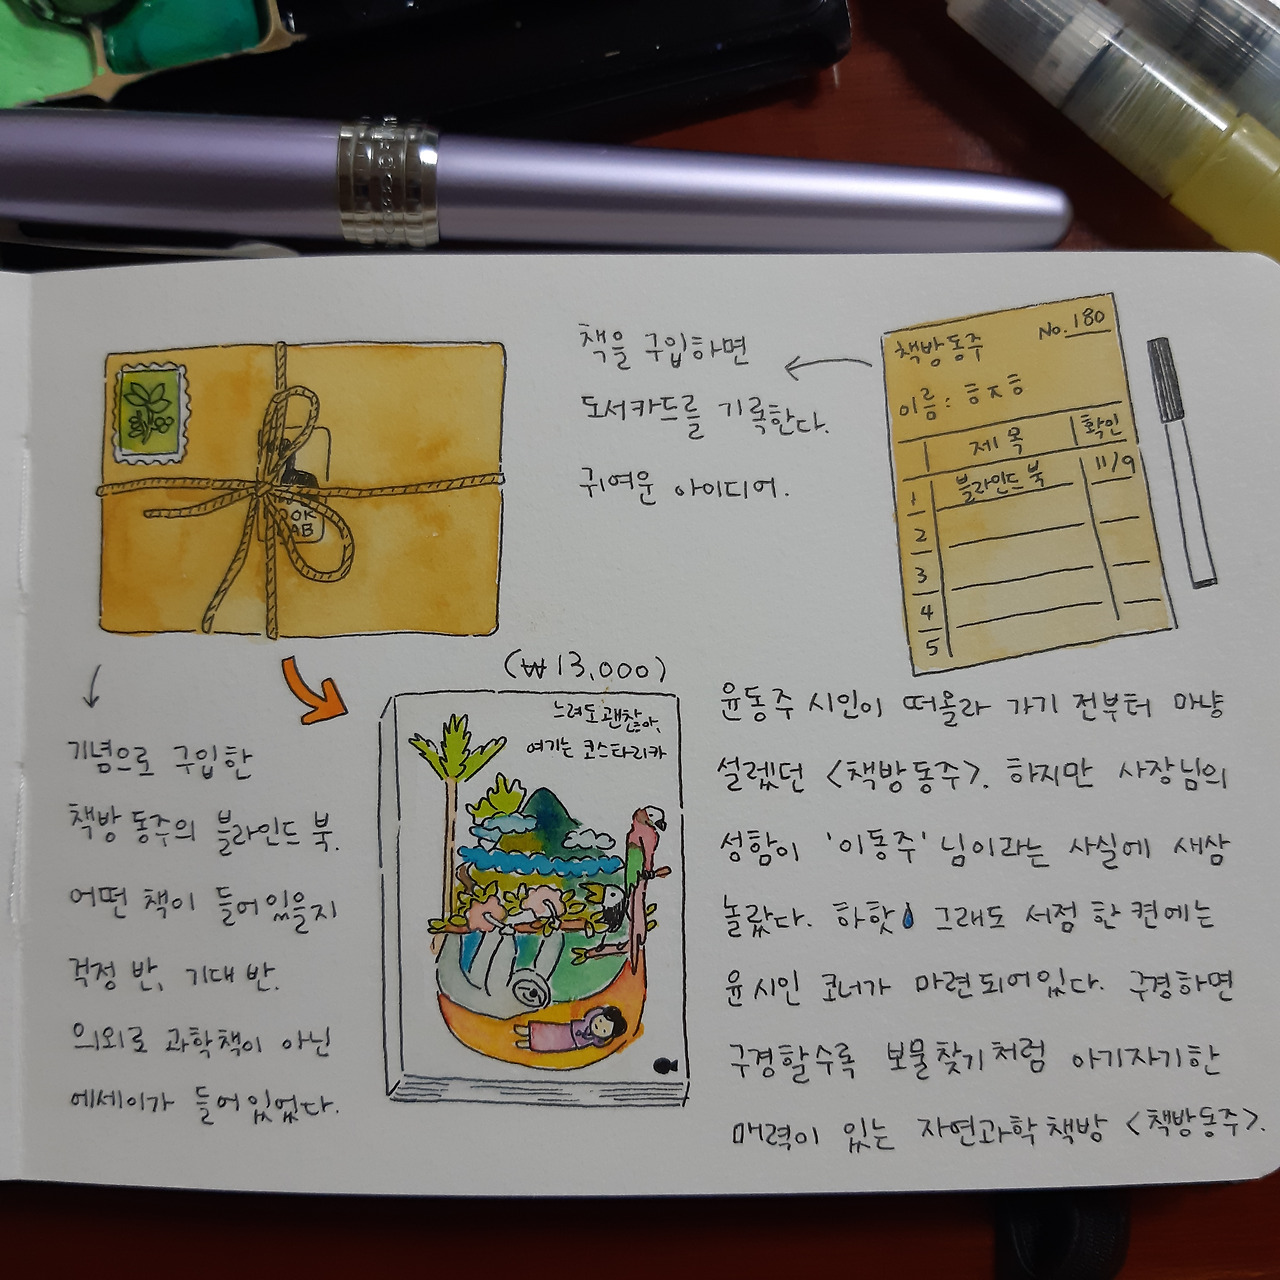 책을 구입하면
도서카드를 기록한다.
귀여운 아이디어.
책방동주 No. 180
이름: ㅎㅈㅎ
제목 확인
1 블라인드 북 11/9
2
3
4
5
OK
AB
기념으로 구입한
책방 동주의 블라인드 북.
어떤 책이 들어있을지
걱정 반, 기대 반.
의외로 과학책이 아닌
에세이가 들어있었다.
(₩13,000)
느려도 괜찮아,
여기는 코스타리카
윤동주 시인이 떠올라 가기 전부터 마냥
설렜던 <책방동주>. 하지만 사장님의
성함이 '이동주'님이라는 사실에 새삼
놀랐다. 하핫 그래도 서점 한 켠에는
윤시인 코너가 마련되어있다. 구경하면
구경할수록 보물찾기처럼 아기자기한
매력이 있는 자연과학책방 <책방동주>.